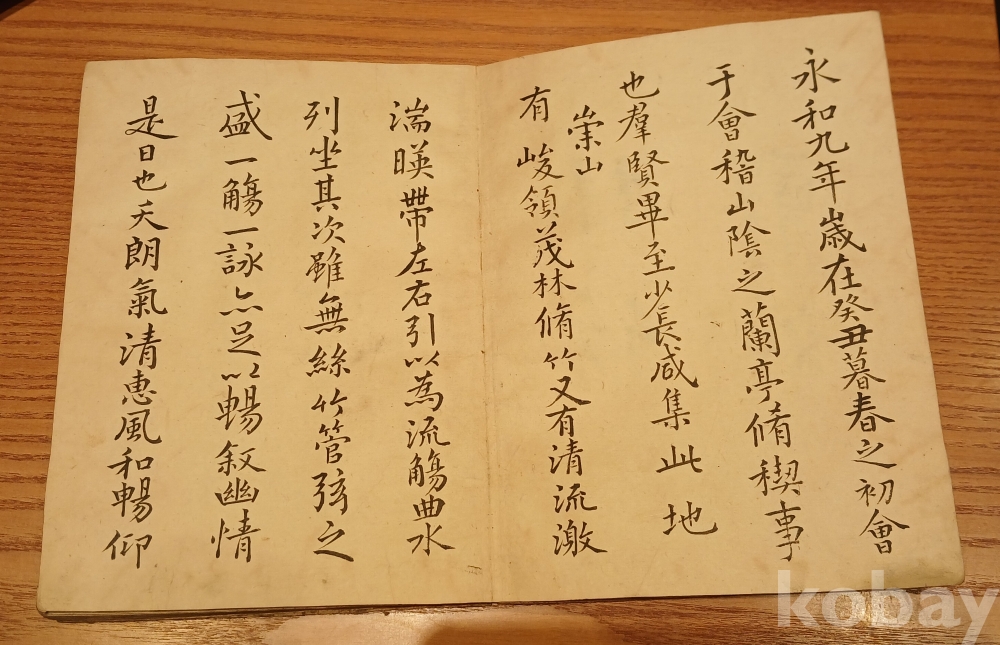 永和九年歲在癸丑暮春之初會
于會稽山陰之蘭亭脩稧事
也羣賢畢至少長咸集此地
有崇山峻領茂林脩竹又有清流激
湍暎帶左右引以為流觴曲水
列坐其次雖無絲竹管弦之
盛一觴一詠亦足以暢敘幽情
是日也天朗氣清惠風和暢仰
kobay